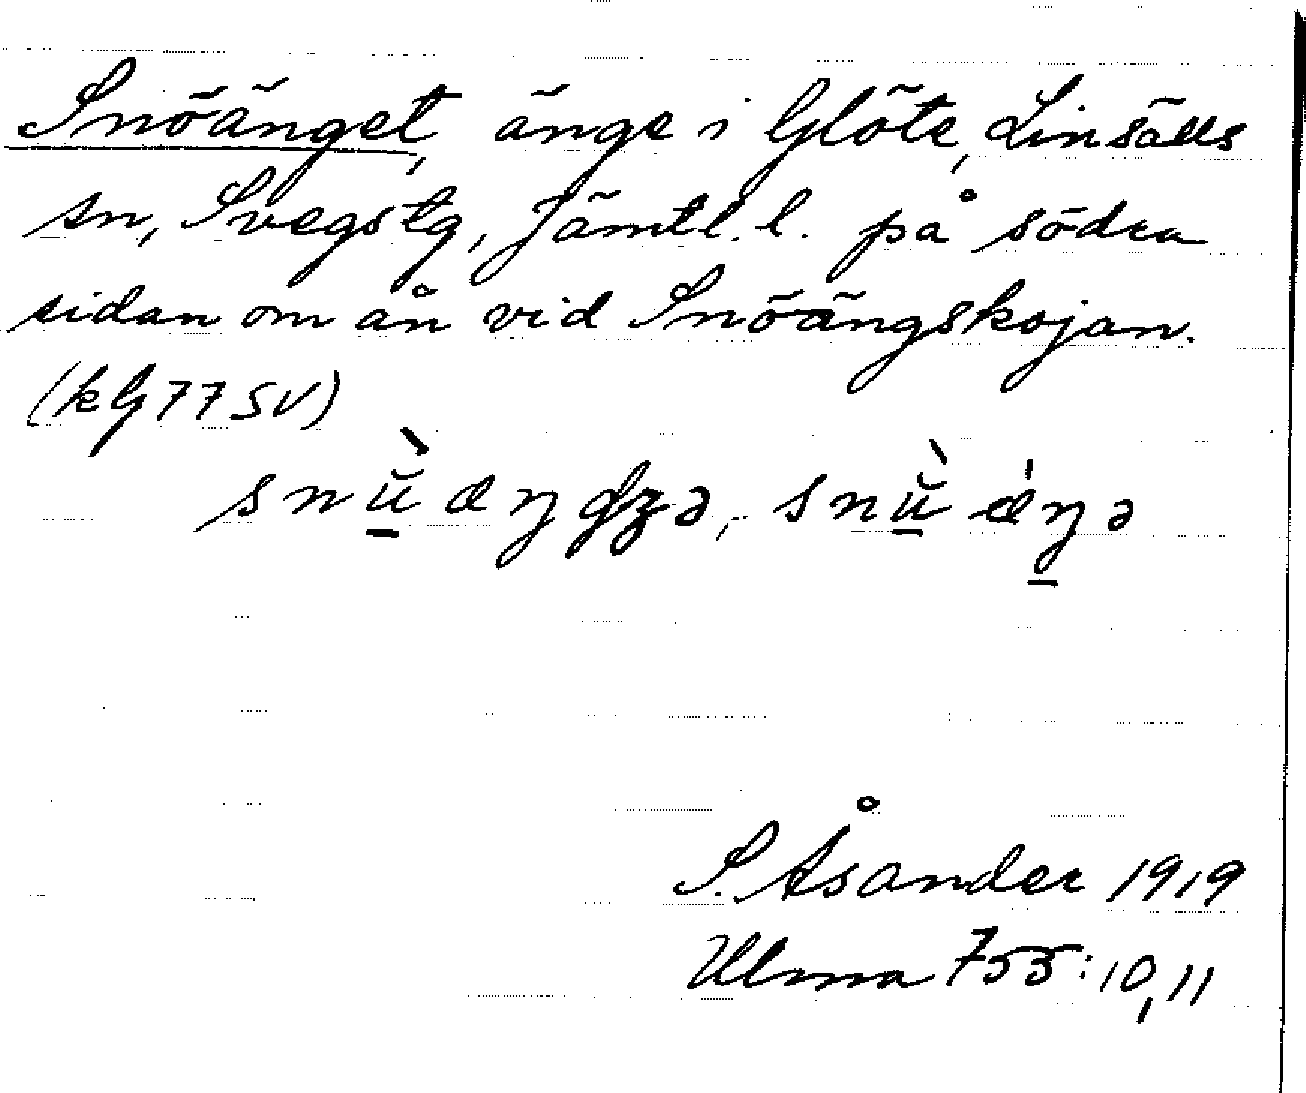 Snöänget, änge i Glöte, Linsälls
sn, Svegs tg, Jämtl. l. på södra
sidan om ån vid Snöängskojan.
(kG 77 SV)
S. Åsander 1919
Ulma 755:10,11